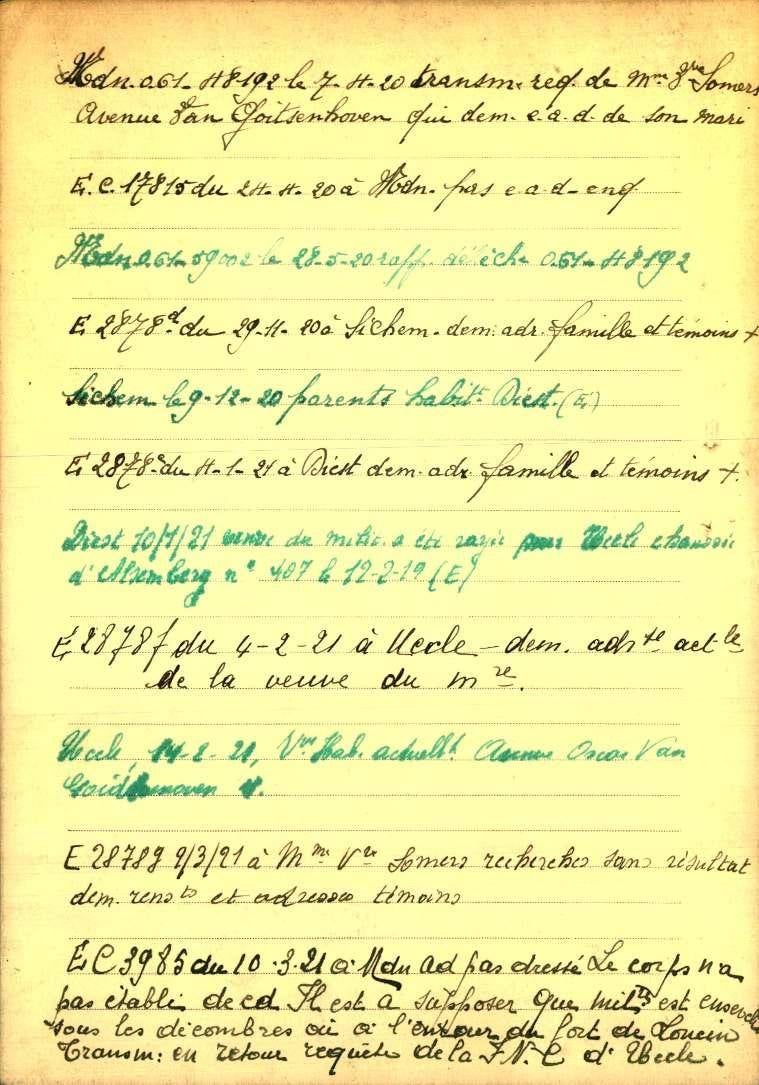 Mdn. 0.61- 48192 le 7-4-20 transm. req. de Mme Vve Somers
Avenue Van Goitsenhoven qui dem. e.a.d. de son mari
E.C. 17815 du 24-4-20 à Mdn. pas e.a.d-enq
Mdn 0.61-59002 le 28-5-20 rapp. dépêche 0.61-48192
E 2878d du 29-11-20 à Sichem. dem. adr. famille et témoins +
Sichem le 9-12-20 parents habitt Diest. (E)
E 2878e du 4-1-21 à Diest dem. adr. famille et témoins +.
Diest 10/1/21 veuve du milic. a été rayée pour Uccle chaussée
d'Alsemberg n° 407 le 12-2-19 (E)
E 2878f du 4-2-21 à Uccle - dem. adrse actle
de la veuve du mre.
Uccle, 14-2-21, Vve Hab. actuellt Avenue Oscar Van
Goidsenoven 4.
E 2878g 9/3/21 à Mme Vve Somers recherches sans résultat
dem. rensts et adresses témoins
E C 3985 du 10.3.21 à Mdn ad pas dressé Le corps n a
pas établi de cd Il est à supposer que milre est enseveli
sous les décombres où à l'entour du fort de Loncin
Transm: en retour requête de la F.N.C d'Uccle.